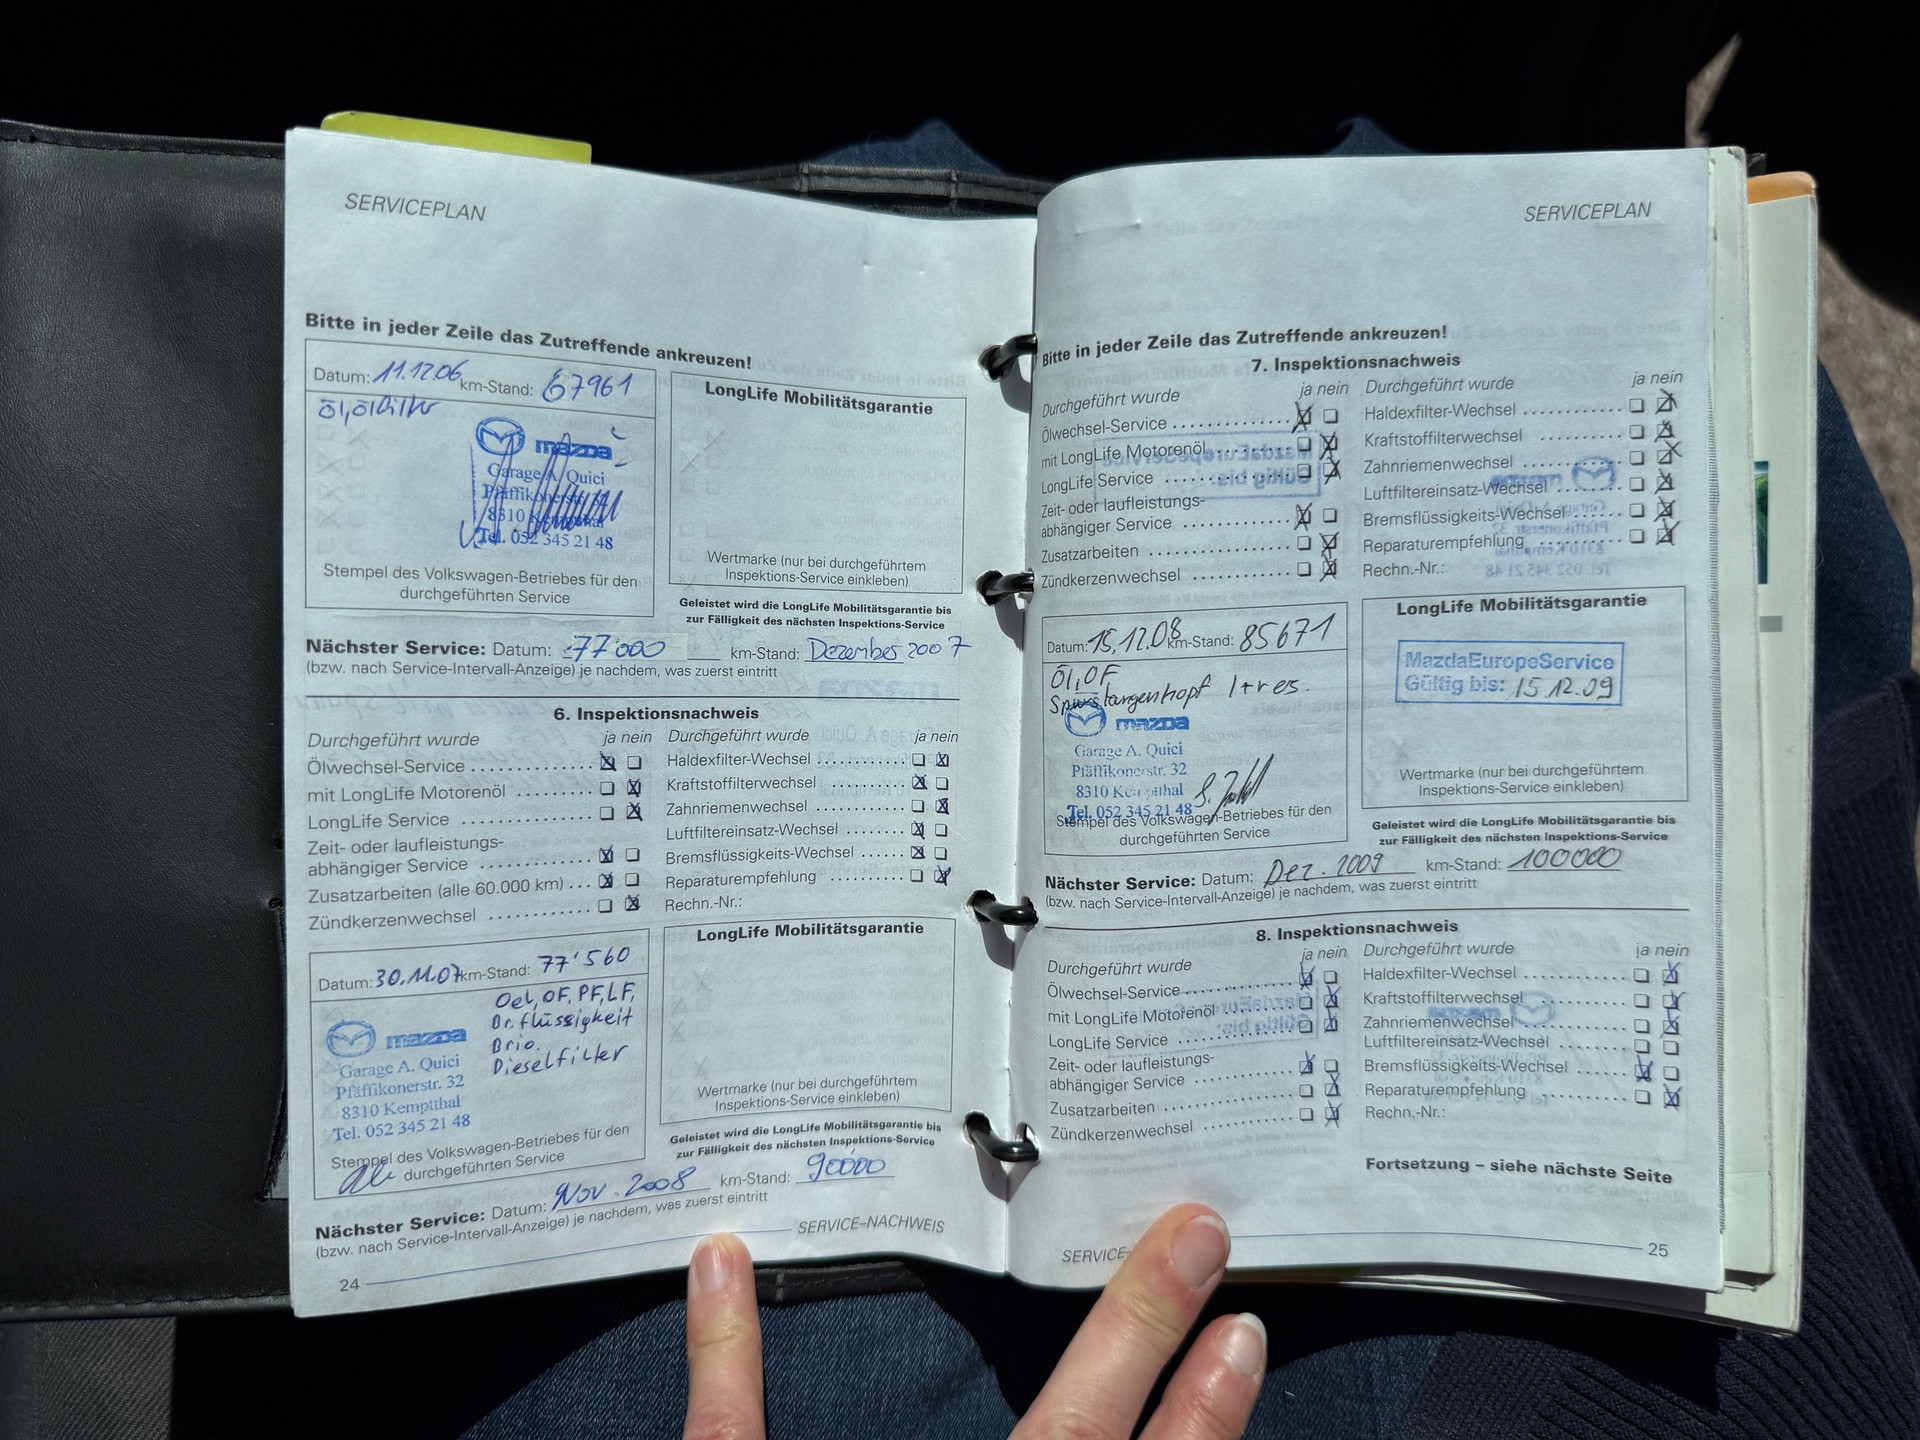 SERVICEPLAN
Bitte in jeder Zeile das Zutreffende ankreuzen!
Datum: 11.12.06 km-Stand: 67961
Öl, Ölfilter
mazda
Garage A. Quici
Pfäffikonerstr.
8310 Kemptthal
Tel. 052 345 21 48
Stempel des Volkswagen-Betriebes für den
durchgeführten Service
LongLife Mobilitätsgarantie
Wertmarke (nur bei durchgeführtem
Inspektions-Service einkleben)
Geleistet wird die LongLife Mobilitätsgarantie bis
zur Fälligkeit des nächsten Inspektions-Service
Nächster Service: Datum: 77'000 km-Stand: Dezember 2007
(bzw. nach Service-Intervall-Anzeige) je nachdem, was zuerst eintritt
6. Inspektionsnachweis
Durchgeführt wurde ja nein
Ölwechsel-Service
mit LongLife Motorenöl
LongLife Service
Zeit- oder laufleistungs-
abhängiger Service
Zusatzarbeiten (alle 60.000 km)
Zündkerzenwechsel
Durchgeführt wurde ja nein
Haldexfilter-Wechsel
Kraftstoffilterwechsel
Zahnriemenwechsel
Luftfiltereinsatz-Wechsel
Bremsflüssigkeits-Wechsel
Reparaturempfehlung
Rechn.-Nr.:
Datum: 30.11.07 km-Stand: 77'560
Oel, OF, PF, LF,
Br.flüssigkeit
Brio.
Dieselfilter
mazda
Garage A. Quici
Pfäffikonerstr. 32
8310 Kemptthal
Tel. 052 345 21 48
Stempel des Volkswagen-Betriebes für den
durchgeführten Service
LongLife Mobilitätsgarantie
Wertmarke (nur bei durchgeführtem
Inspektions-Service einkleben)
Geleistet wird die LongLife Mobilitätsgarantie bis
zur Fälligkeit des nächsten Inspektions-Service
Nächster Service: Datum: Nov. 2008 km-Stand: 90000
(bzw. nach Service-Intervall-Anzeige) je nachdem, was zuerst eintritt
SERVICE–NACHWEIS
24
SERVICEPLAN
Bitte in jeder Zeile das Zutreffende ankreuzen!
7. Inspektionsnachweis
Durchgeführt wurde ja nein
Ölwechsel-Service
mit LongLife Motorenöl
LongLife Service
Zeit- oder laufleistungs-
abhängiger Service
Zusatzarbeiten
Zündkerzenwechsel
Durchgeführt wurde ja nein
Haldexfilter-Wechsel
Kraftstoffilterwechsel
Zahnriemenwechsel
Luftfiltereinsatz-Wechsel
Bremsflüssigkeits-Wechsel
Reparaturempfehlung
Rechn.-Nr.:
Datum: 15.12.08 km-Stand: 85671
Öl, OF
Spurstangenkopf l+r es.
mazda
Garage A. Quici
Pfäffikonerstr. 32
8310 Kemptthal
Tel. 052 345 21 48
Stempel des Volkswagen-Betriebes für den
durchgeführten Service
LongLife Mobilitätsgarantie
MazdaEuropeService
Gültig bis: 15 12.09
Wertmarke (nur bei durchgeführtem
Inspektions-Service einkleben)
Geleistet wird die LongLife Mobilitätsgarantie bis
zur Fälligkeit des nächsten Inspektions-Service
Nächster Service: Datum: Dez. 2009 km-Stand: 100000
(bzw. nach Service-Intervall-Anzeige) je nachdem, was zuerst eintritt
8. Inspektionsnachweis
Durchgeführt wurde ja nein
Ölwechsel-Service
mit LongLife Motorenöl
LongLife Service
Zeit- oder laufleistungs-
abhängiger Service
Zusatzarbeiten
Zündkerzenwechsel
Durchgeführt wurde ja nein
Haldexfilter-Wechsel
Kraftstoffilterwechsel
Zahnriemenwechsel
Luftfiltereinsatz-Wechsel
Bremsflüssigkeits-Wechsel
Reparaturempfehlung
Rechn.-Nr.:
Fortsetzung – siehe nächste Seite
SERVICE–
25